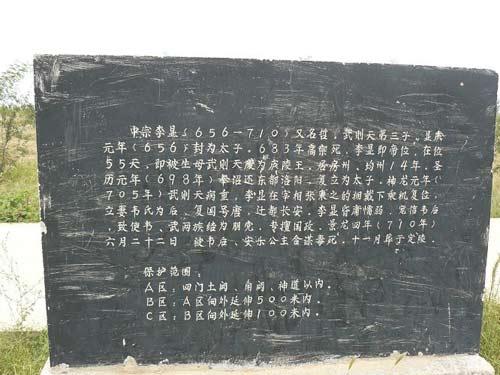 中宗李显(656—710)又名哲,武则天第三子。显庆
元年(656)封为太子。683年高宗死,李显即帝位,在位
55天,即被生母武则天废为庐陵王,居房州、均州14年,圣
历元年(698年)奉诏还东都洛阳,复立为太子,神龙元年(
705年)武则天病重,李显在宰相张柬之的拥戴下乘机复位,
立妻韦氏为后,复国号唐,迁都长安。李显昏庸懦弱,宠信韦后
,致使韦、武两族结为朋党,专擅国政,景龙四年(710年)
六月二十二日 被韦后、安乐公主合谋毒死,十一月葬于定陵。
保护范围:
A区:四门土阙、角阙、神道以内。
B区:A区向外延伸500米内。
C区:B区向外延伸100米内。